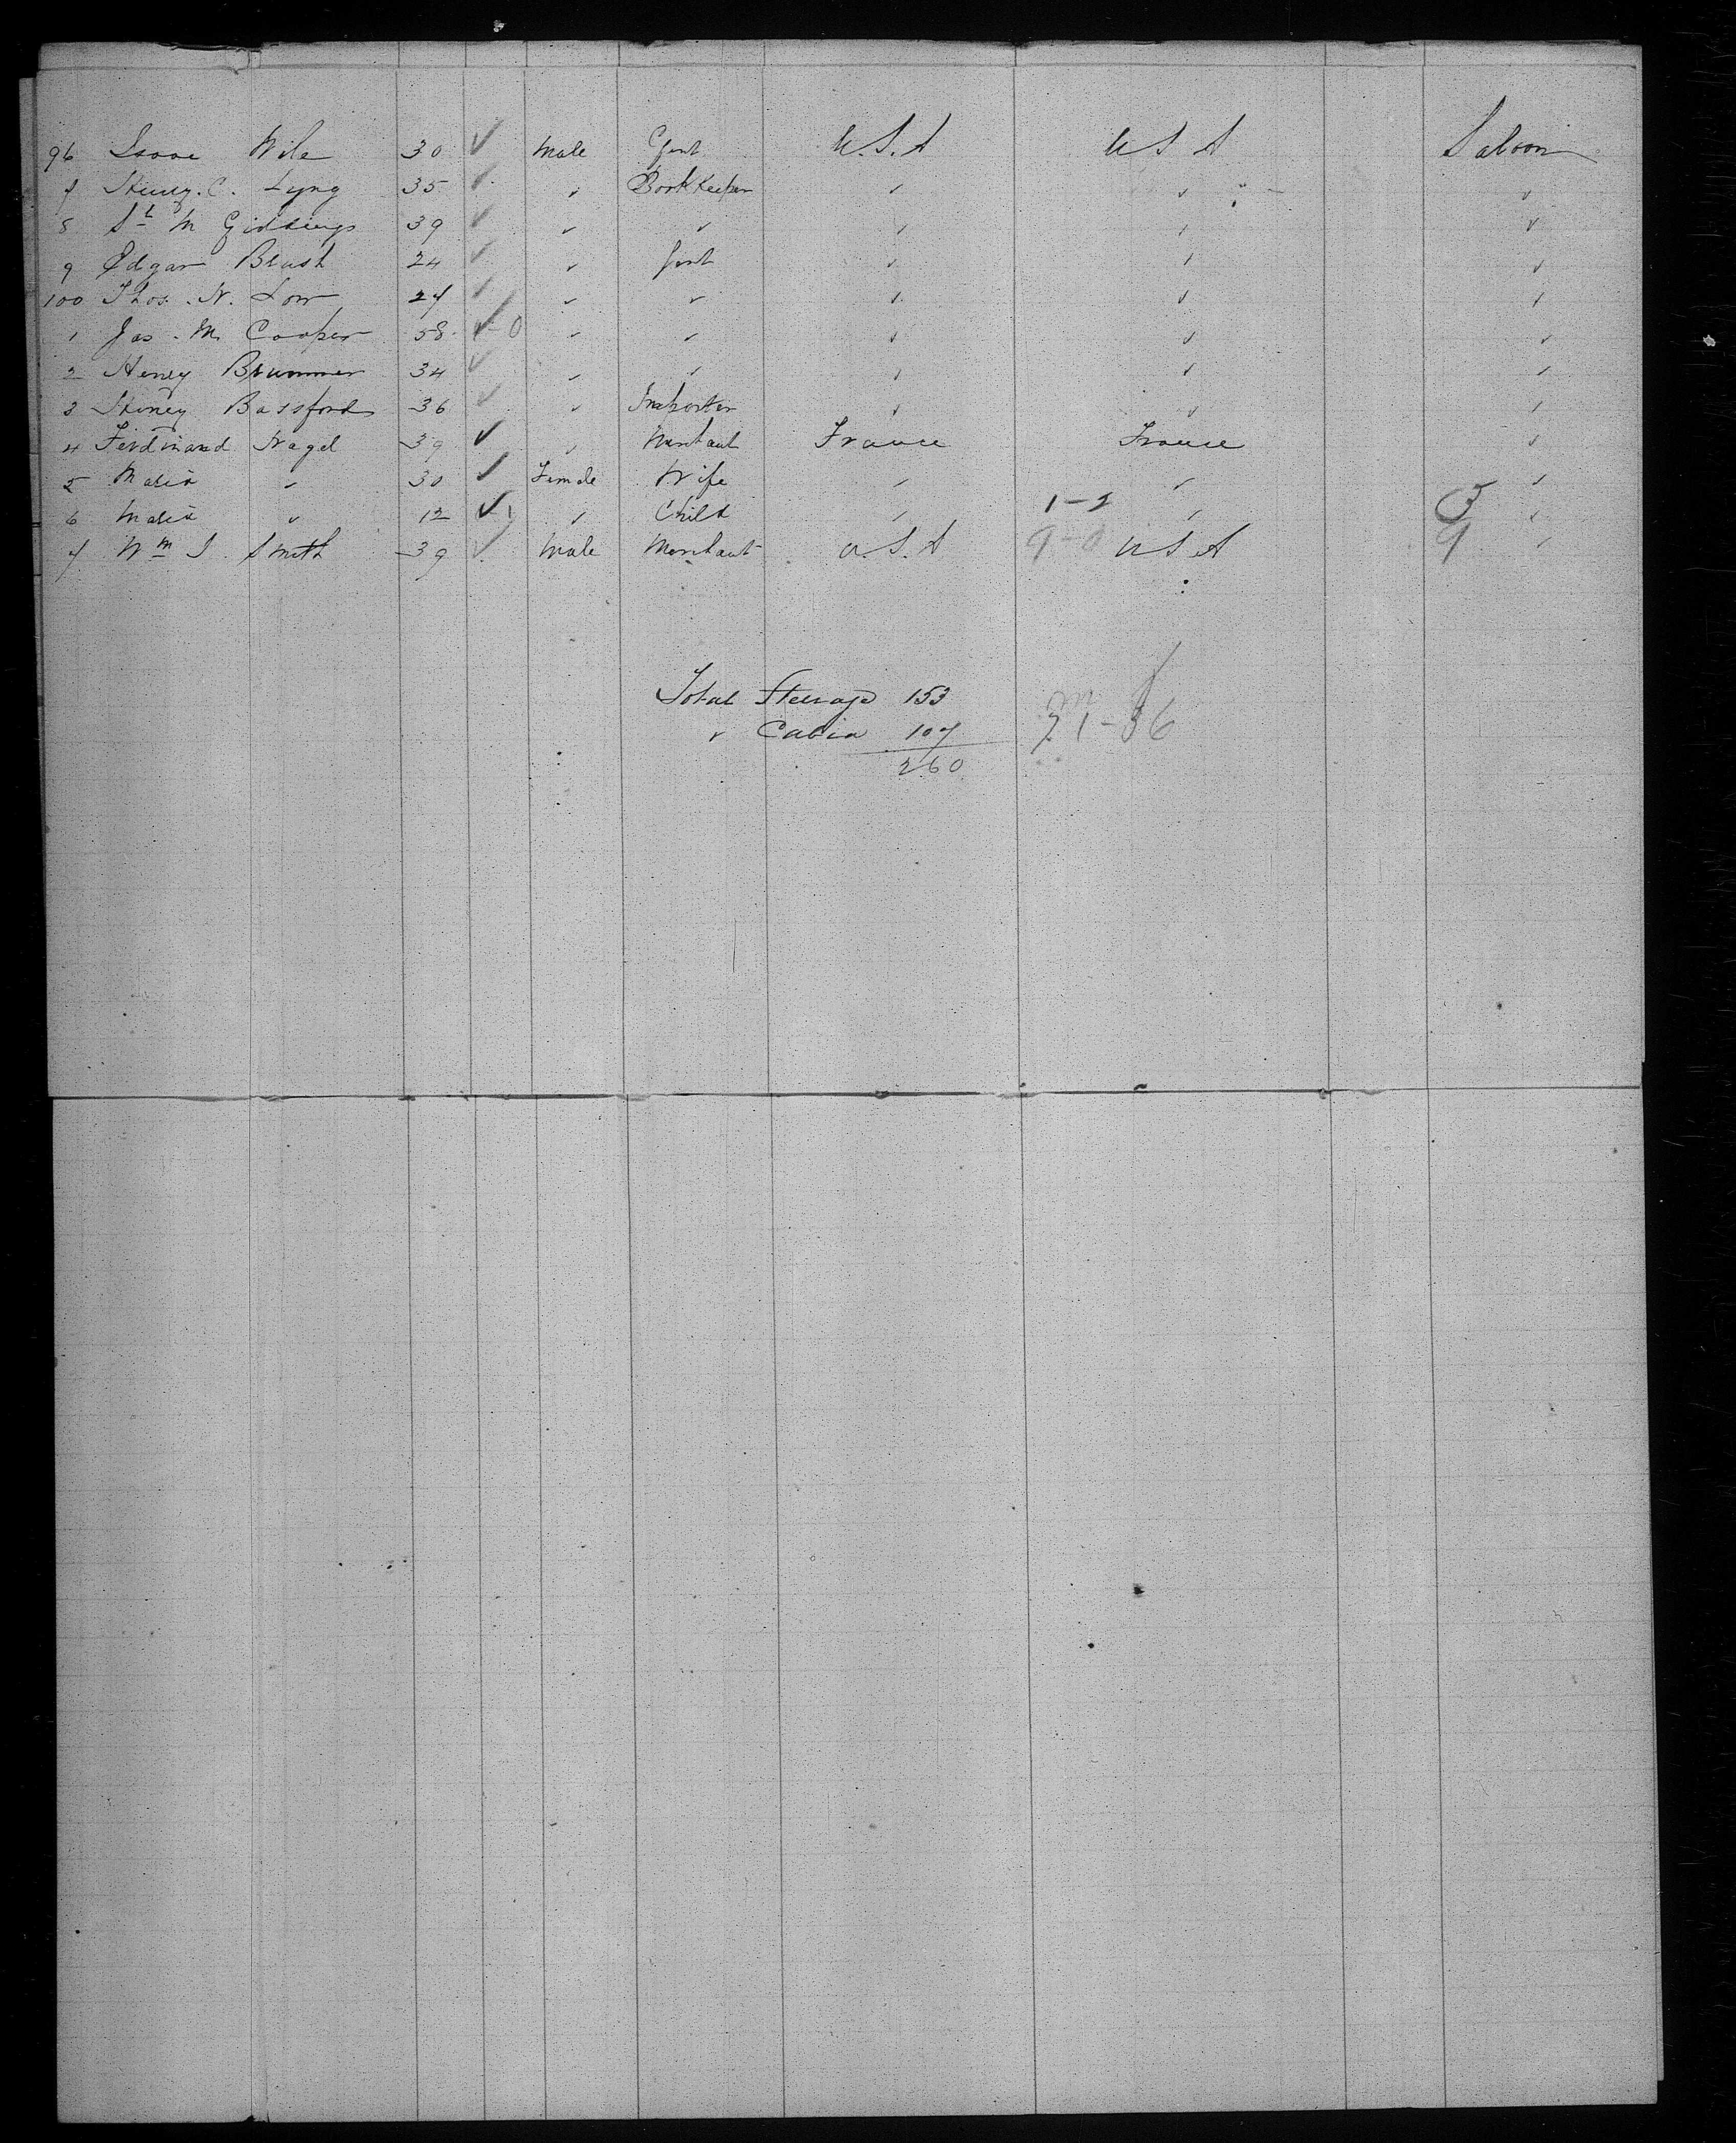 96 Isaac Wile 30 ✓ Male Gent U.S.A U S A Saloon
7 Henry. C. Lyng 35 ✓ " Bookkeeper " " "
8 St M Giddings 39 ✓ " " " " "
9 Edgar Brush 24 ✓ " Gent " " "
100 Thos. N. Low 27 ✓ " " " " "
1 Jas. M. Cooper 58 ✓ 0 " " " " "
2 Henry Brummer 34 ✓ " " " " "
3 Henry Bassford 36 ✓ " Importer " " "
4 Ferdinand Nagel 39 ✓ " Merchant France France "
5 Maria " 30 ✓ Female Wife " " "
6 Maria " 12 ✓ " Child " 1-2 " 3 "
7 Wm S. Smith 39 ✓ Male Merchant U.S.A 9-0 U S A 9 "
Total Steerage 153
" Cabin 107 71-36
260